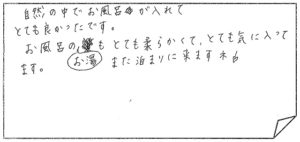 自然の中でお風呂が入れて
とても良かったです。
お風呂のもとても柔らかくて、とても気に入って
ます。 お湯 また泊まりに来ますネ